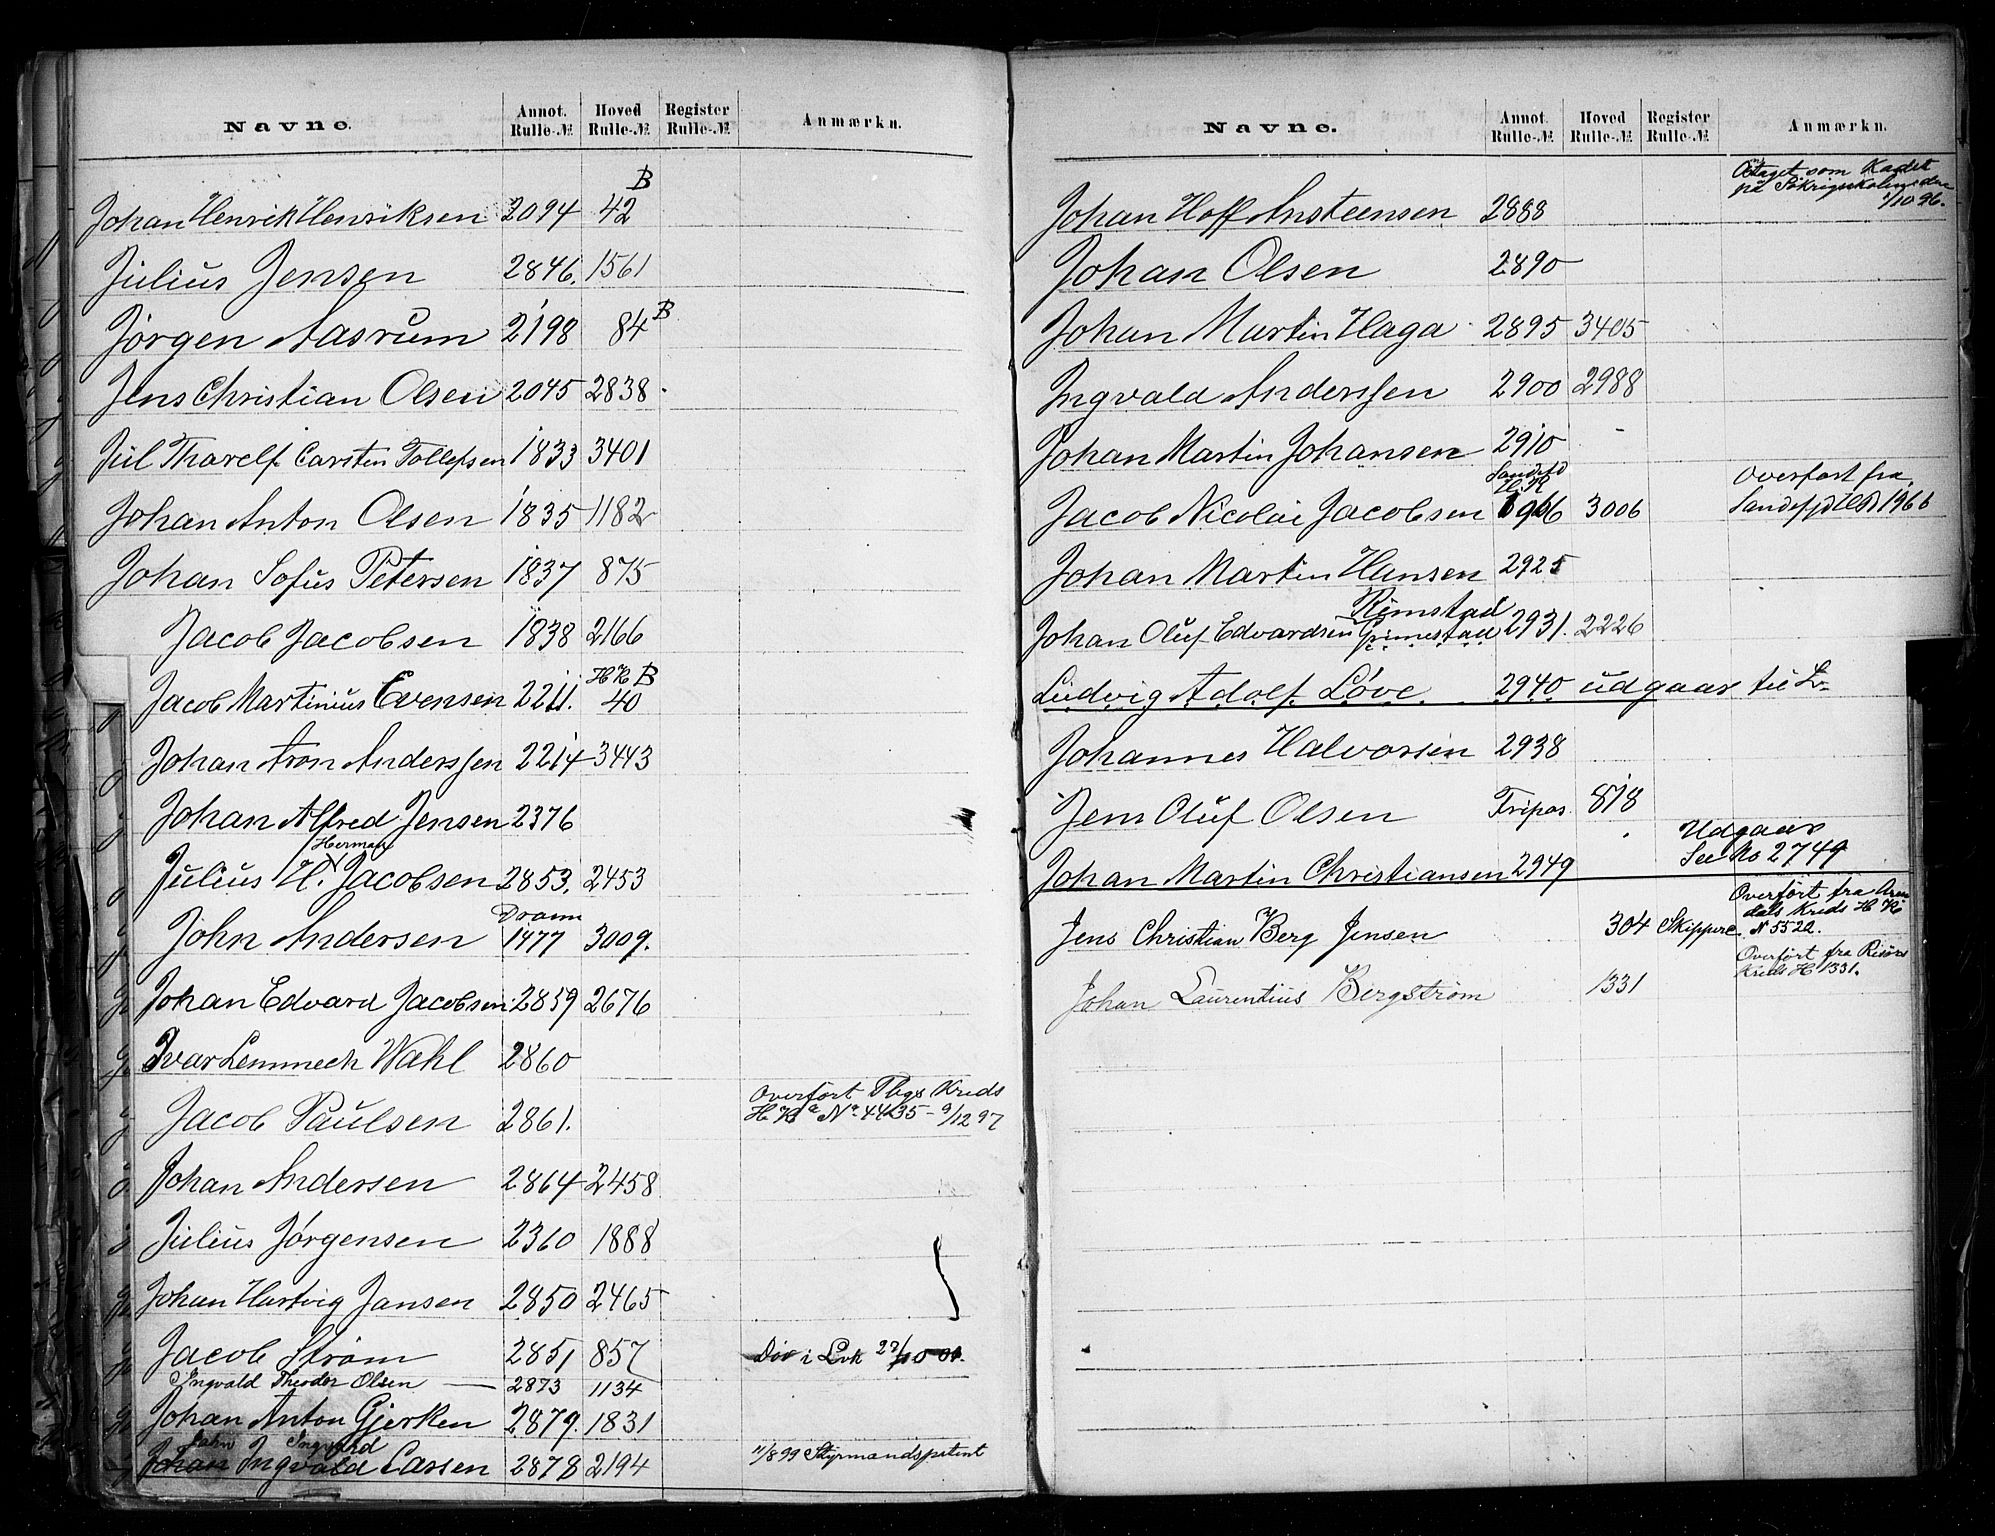 Navne. Annot. Rulle-№ Hoved Rulle-№ Register Rulle-№ Anmærkn.
B
Johan Henrik Henriksen 2094 42
Julius Jensen 2846. 1561
Jørgen Aasrum 2198 84 B
Jens Christian Olsen 2045 2838
Jul Tharelf Carsten Tollefsen 1833 3401
Johan Anton Olsen 1835 1182
Johan Sofus Petersen 1837 875
Jacob Jacobsen 1838 2166
HR B
Jacob Martinius Evensen 2211. 40
Johan Aron Anderssen 2214 3443
Johan Alfred Jensen 2376
Herman
Julius H. Jacobsen 2853. 2453
Dramm
John Andersen 1477 3009.
Johan Edvard Jacobsen 2859 2676
Ivar Lemmech Wahl 2860
Overført Tbgs Kreds
Jacob Paulsen 2861. H R a No 4435 - 9/12 97
Johan Andersen 2864 2458
Julius Jørgensen 2360 1888
Johan Hartvig Jansen 2850 2465
Jacob Strøm 2851 857 Død i Lvk 27/10 00.
Ingvald Theodor Olsen 2873 1134
Johan Anton Gjerken 2879. 1831
John Ingvard
Johan Ingvald Larsen 2878 2194 11/8 99 Styrmandspatent
Navne. Annot. Rulle-№ Hoved Rulle-№ Register Rulle-№ Anmærkn.
Optaget som Kadet
på Søkrigsskolen den
Johan Hoff Ansteensen 2888 1/10 96.
Johan Olsen 2890
Johan Martin Haga 2895 3405
Ingvald Anderssen 2900 2988
Johan Martin Johansen 2910
Sandefd H.R Overført fra
Jacob Nicolai Jacobsen 1966 3006 Sandefjd HR 1966
Johan Martin Hansen 2925
Rimstad
Johan Oluf Edvardsen Grimestad 2931. 2226
Ludvig Adolf Løve 2940 udgaar til L
Johannes Halvorsen 2938
Jens Oluf Olsen Fripas. 818
Udgaar
Johan Martin Christiansen 2949 See No 2749
Overført fra Aren
dals Kreds H R
Jens Christian Berg Jensen 304 Skippere N 5522.
Overført fra Risørs
Kreds H 1331.
Johan Laurentius Bergstrøm 1331